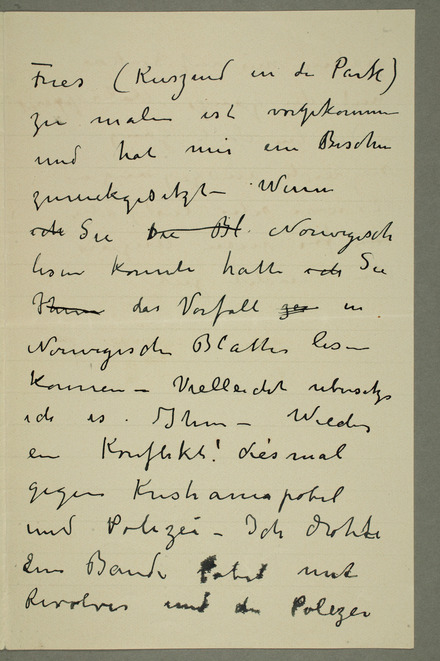 Fries (Küszend in de Park)
zu malen ist vorgekommen
und hat mir ein Bischen
zurückgesetzt – Wenn
ich Sie Die Bl. Norwegisch
lesen konnte hatte ich Sie
Ihnen das Vorfall in
Norwegische Blatter lesen
konnen – Vielleicht ubersetze
ich es Ihnen – Wieder
ein Konflikt! diesmal
gegen Kristianiapobel
und Polizei – Ich drohte
eine Bande Pobel mit
Revolver und die Polizei